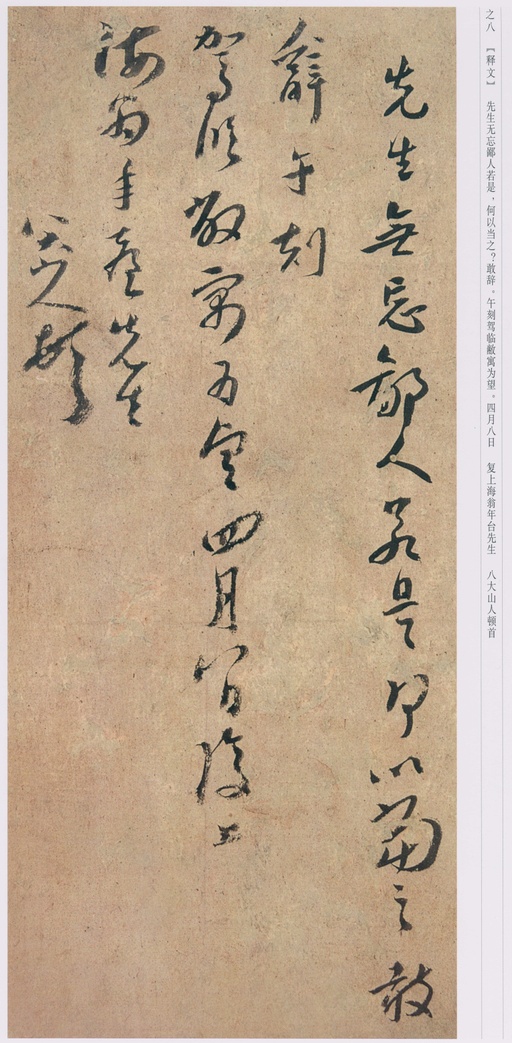 之八 【释文】 先生无忘鄙人若是，何以当之？敢辞。午刻驾临敝寓为望。四月八日 复上海翁年台先生 八大山人顿首
先生無忘鄙人若是何以當之敢
辭午刻
駕臨敝寓為望四月八日復上
海翁年臺先生
八大山人頓首